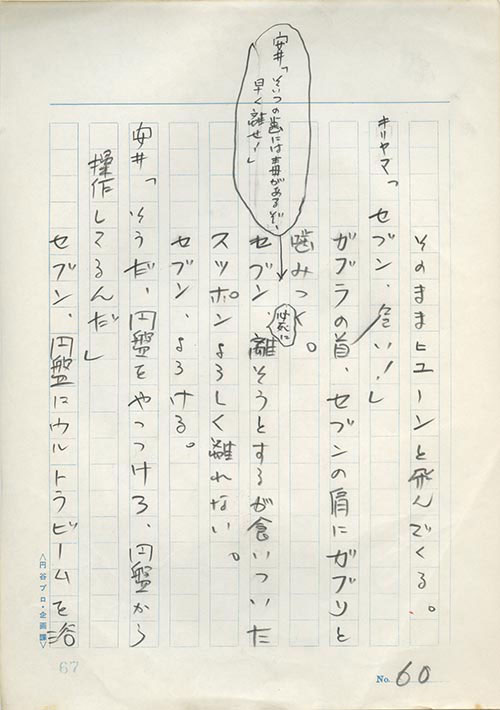 そのままヒューンと飛んでくる。
キリヤマ「セブン、危い！」
ガブラの首、セブンの肩にガブリと
噛みつく。
安井「そいつの歯には毒があるぞ、
早く離せ！」
セブン、必死に離そうとするが食いついた
スッポンよろしく離れない。
セブン、よろける。
安井「そうだ、円盤をやっつけろ、円盤から
操作してるんだ」
セブン、円盤にウルトラビームを浴
＜円谷プロ・企画課＞
67
No. 60